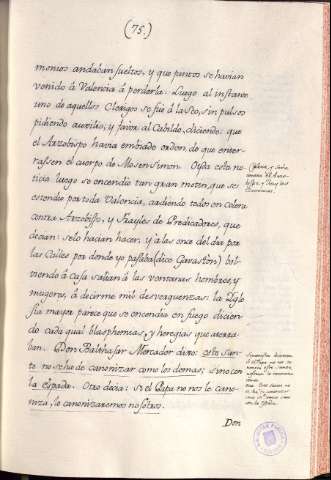 (75.)
monios andaban sueltos, y que juntos se havian
venido á Valencia á perderla. Luego al instante
uno de aquellos Clerigos se fué á la Seo, sin pulsos
pidiendo auxilio, y favor al Cabildo, diciendo: que
el Arzobispo havia embiado orden de que enter-
rassen el cuerpo de Mosen Simon. Oyda esta no-
ticia luego se encendió tan gran motin, que se es-
tendió por toda Valencia, ardiendo todos en colera
contra Arzobispo, y Frayles de Predicadores, que
decian: se lo hacian hacer. Y á las once del dia por
las Calles por donde yo passaba (dice Gavastón) bol-
viendo á Casa salian á las ventanas hombres, y
mugeres, á decirme mil desverguenzas: la Igle-
sia mayor parece que se encendia en fuego dicien-
do cada qual blasphemias, y heregias que aterra-
ban. Don Balthasar Mercador dixo: este San-
to no se ha de canonizar como los demas; sino con
la Espada. Otro decia: Si el Papa no nos le cano-
niza, le canonizaremos nosotros.
Don